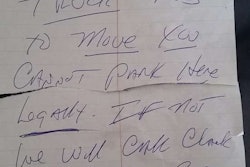 to Move You
CANNOT PARK Here
Legally. If Not
We will Call Clark